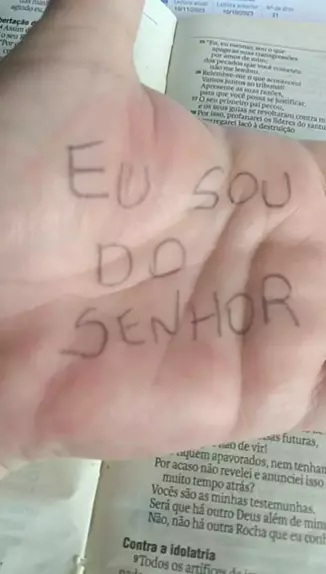 Leitura atual
16/11/2023
Leitura anterior
Nº de dias
31
25 "Eu, eu mesmo, sou o que
apago suas transgressões
por amor de mim,
dos pecados que você cometeu
não me lembro.
26 Relembre-me o que aconteceu!
Vamos juntos ao tribunal!
Apresente as suas razões,
para que você possa se justificar.
27 O seu primeiro pai pecou,
e os seus guias se revoltaram contra m
28 Por isso, profanarei os líderes do santu
regarei Jacó à destruição
EU SOU
DO
SENHOR
sas futuras,
hão de vir!
quem apavorados, nem tenham
Por acaso não revelei e anunciei isso
muito tempo atrás?
Vocês são as minhas testemunhas.
Será que há outro Deus além de mim
Não, não há outra Rocha que eu conh
Contra a idolatria
9 Todos os artífices de